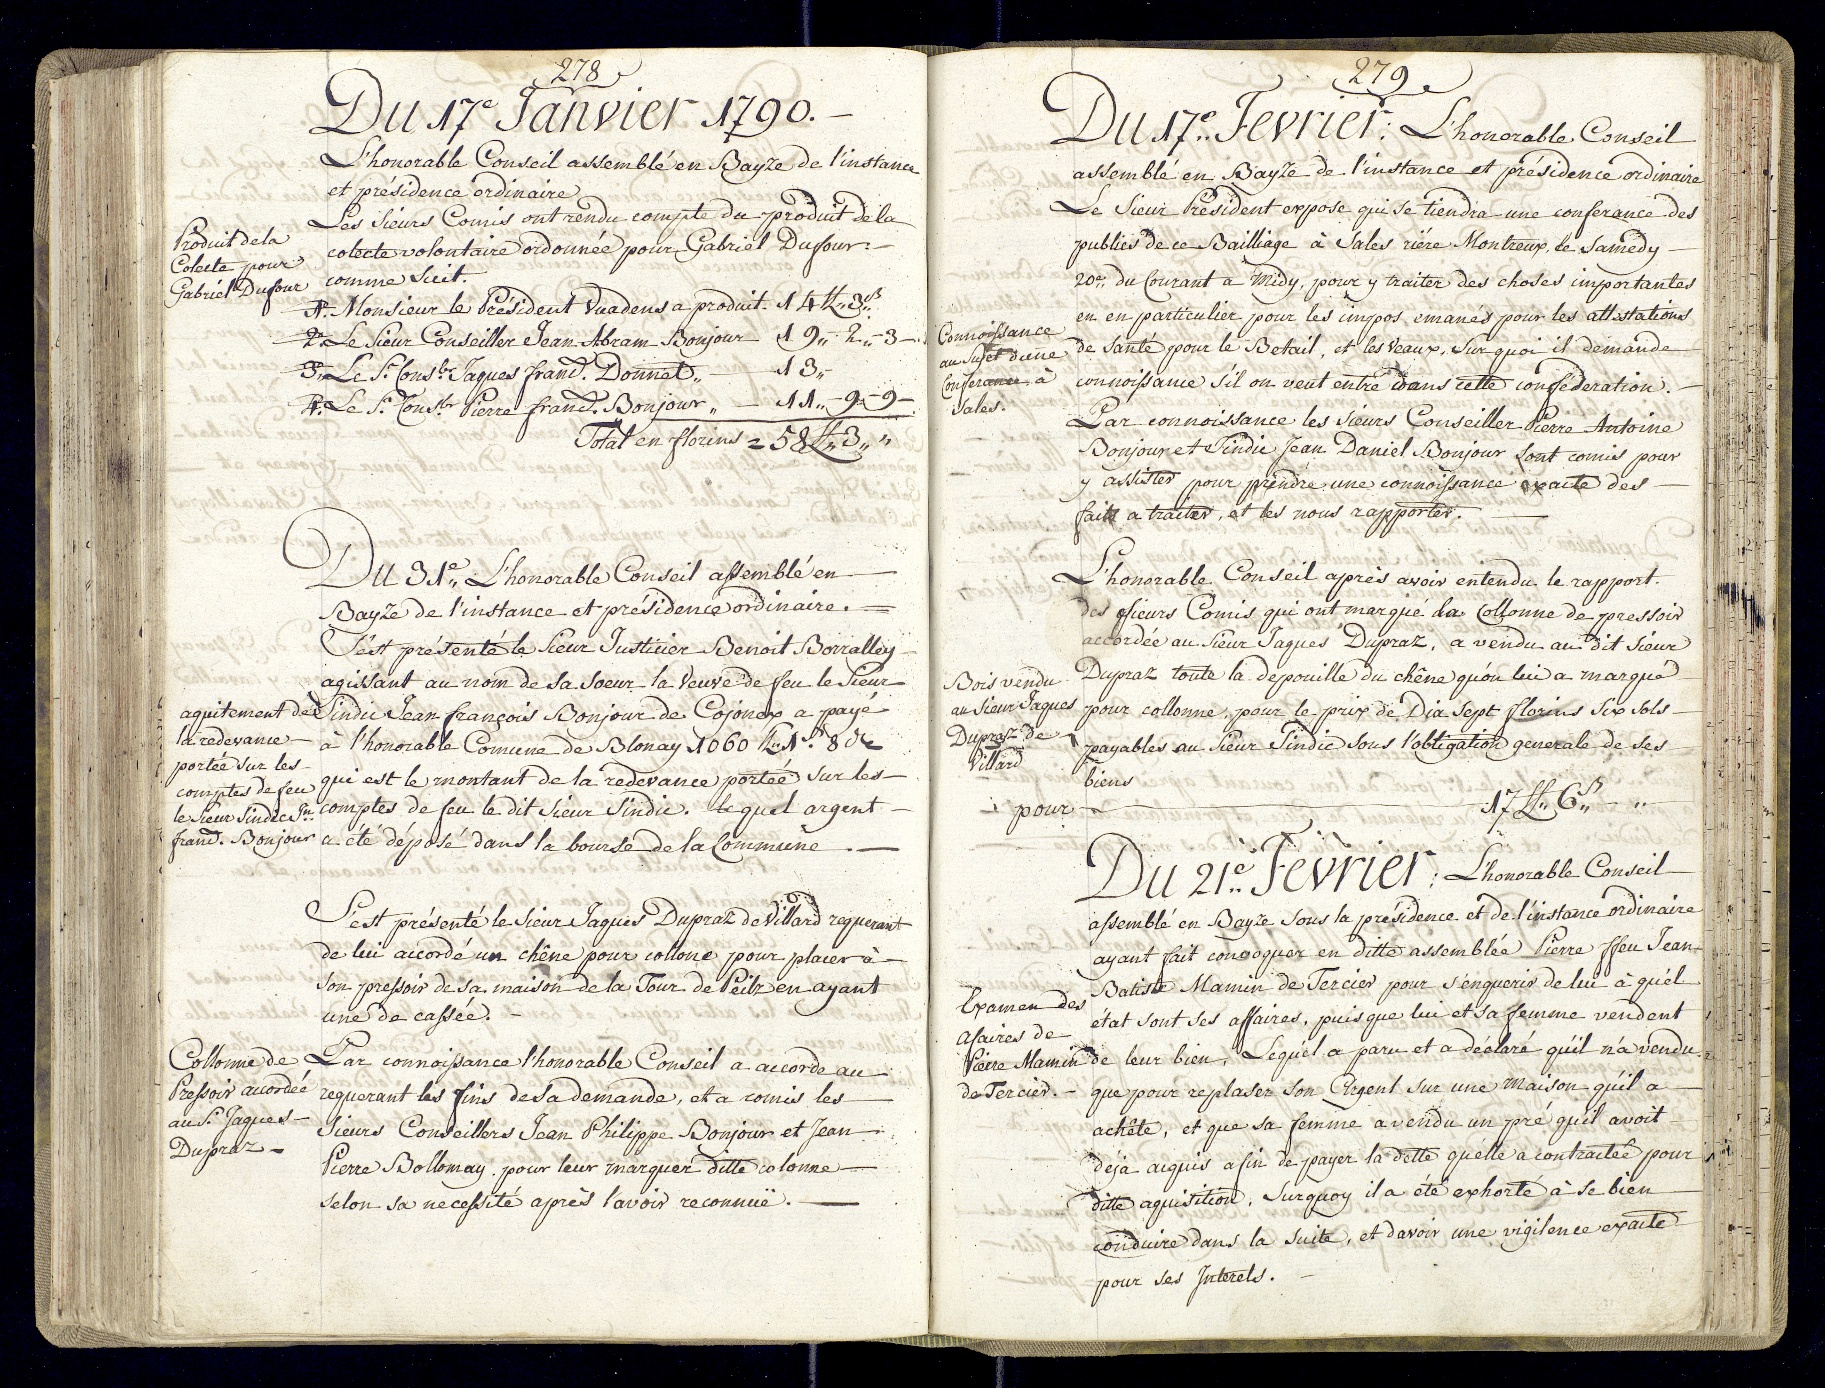 278
Du 17e Janvier 1790. —
L'honorable Conseil assemblé en Bayze de l'instance
et présidence ordinaire
Les Sieurs Comis ont rendu compte du produit de la
colecte volontaire ordonnée pour Gabriel Dufour. —
comme suit.
Produit de la
Colecte pour
Gabriel Dufour
1°. Monsieur le Président Vuadens a produit. 14 ll„ 3ß„
2°. Le Sieur Conseiller Jean Abram Bonjour 19„ - 2„ - 3 —
3°. Le Sr. Consler Jaques franç. Donnet„ — 13„
4°. Le Sr. Consler Pierre franç. Bonjour„ — 11„ - 9 - 9 —
Total en florins = 58 ll„ 3„ „
Du 31e„ L'honorable Conseil assemblé en —
Bayze de l'instance et présidence ordinaire. —
S'ést présenté le Sieur Justicier Benoit Borralley
agissant au nom de sa soeur la Veuve de feu le Sieur
Sindic Jean françois Bonjour de Cojonex a payé
à l'honorable Comune de Blonay 1060 ll„ 1s. 8 d
qui est le montant de la redevance portéé sur les —
comptes de feu le dit Sieur Sindic. le quel argent —
a été déposé dans la bourse de la Commune . —
aquitement de
la redevance —
portée sur les
comptes de feu
le Sieur Sindic Jn.
franç. Bonjour
S'est présenté le Sieur Jaques Dupraz de Villard requerant
de lui accordé un chêne pour collone pour placer à —
son pressoir de sa maison de la Tour de Peilz en ayant
une de cassée. —
Par connoissance l'honorable Conseil a accorde au
requerant les fins de sa demande, et a comis les —
Sieurs Conseillers Jean Philippe Bonjour et Jean
Pierre Bollomay pour leur marquer ditte colonne —
selon sa necessité après l'avoir reconnuë. —
Collonne de
Pressoir accordéé
au Sr. Jaques —
Dupraz —
279
Du 17e„ Fevrier: L'honorable Conseil
assemblé en Bayze de l'instance et présidence ordinaire
Le Sieur Président expose qui se tiendra une conferance des
publics de ce Bailliage à Sales riére Montreux, le Samedy —
20e„ du Courant a Midy, pour y traiter des choses importantes
en en particulier pour les impos emanés pour les attestations
de santé pour le Betail, et les Veaux, Sur quoi il demande
connoissance s'il on veut entré dans cette conféderation. —
Connoissance
au Sujet d'une
Conferance à
Sales.
Par connoissance les Sieurs Conseiller Pierre Antoine
Bonjour et Sindic Jean Daniel Bonjour sont comis pour
y assister pour prendre une connoissance exacte des —
faits a traiter, et les nous rapporter. —
L'honorable Conseil après avoir entendu le rapport.
des Sieurs Comis qui ont marqué la Collonne de pressoir
accordée au Sieur Jaques Dupraz, a vendu au dit Sieur
Dupraz toute la depouille du chêne qu'on lui a marqué
pour collonne, pour le prix de Dix Sept florins Six Sols —
payables au Sieur Sindic sous l'obligation generale de ses
biens
pour — 17 ll„ 6ß„ „
Bois vendu
au Sieur Jaques
Dupraz de
Villard
Du 21e„ Fevrier: L'honorable Conseil
assemblé en Bayze sous la présidence et de l'instance ordinaire
ayant fait convoquer en ditte assemblée Pierre ffeu Jean
Batiste Mamin de Tercier pour s'enquerir de lui à quél
état sont ses affaires, puis que lui et sa femme vendent
de leur bien, Lequél a paru et a déclaré qu'il n'a vendu
que pour replaser son Argent sur une maison qu'il a —
achête, et que sa femme a vendu un pré qu'il avoit —
déjà acquis afin de payer la dette quelle a contractéé pour
ditte aquisition, Surquoy il a été exhorté à se bien
conduire dans la suite, et d'avoir une vigilence exacte
pour ses Interets. —
Examen des
afaires de
Pierre Mamin
de Tercier. —